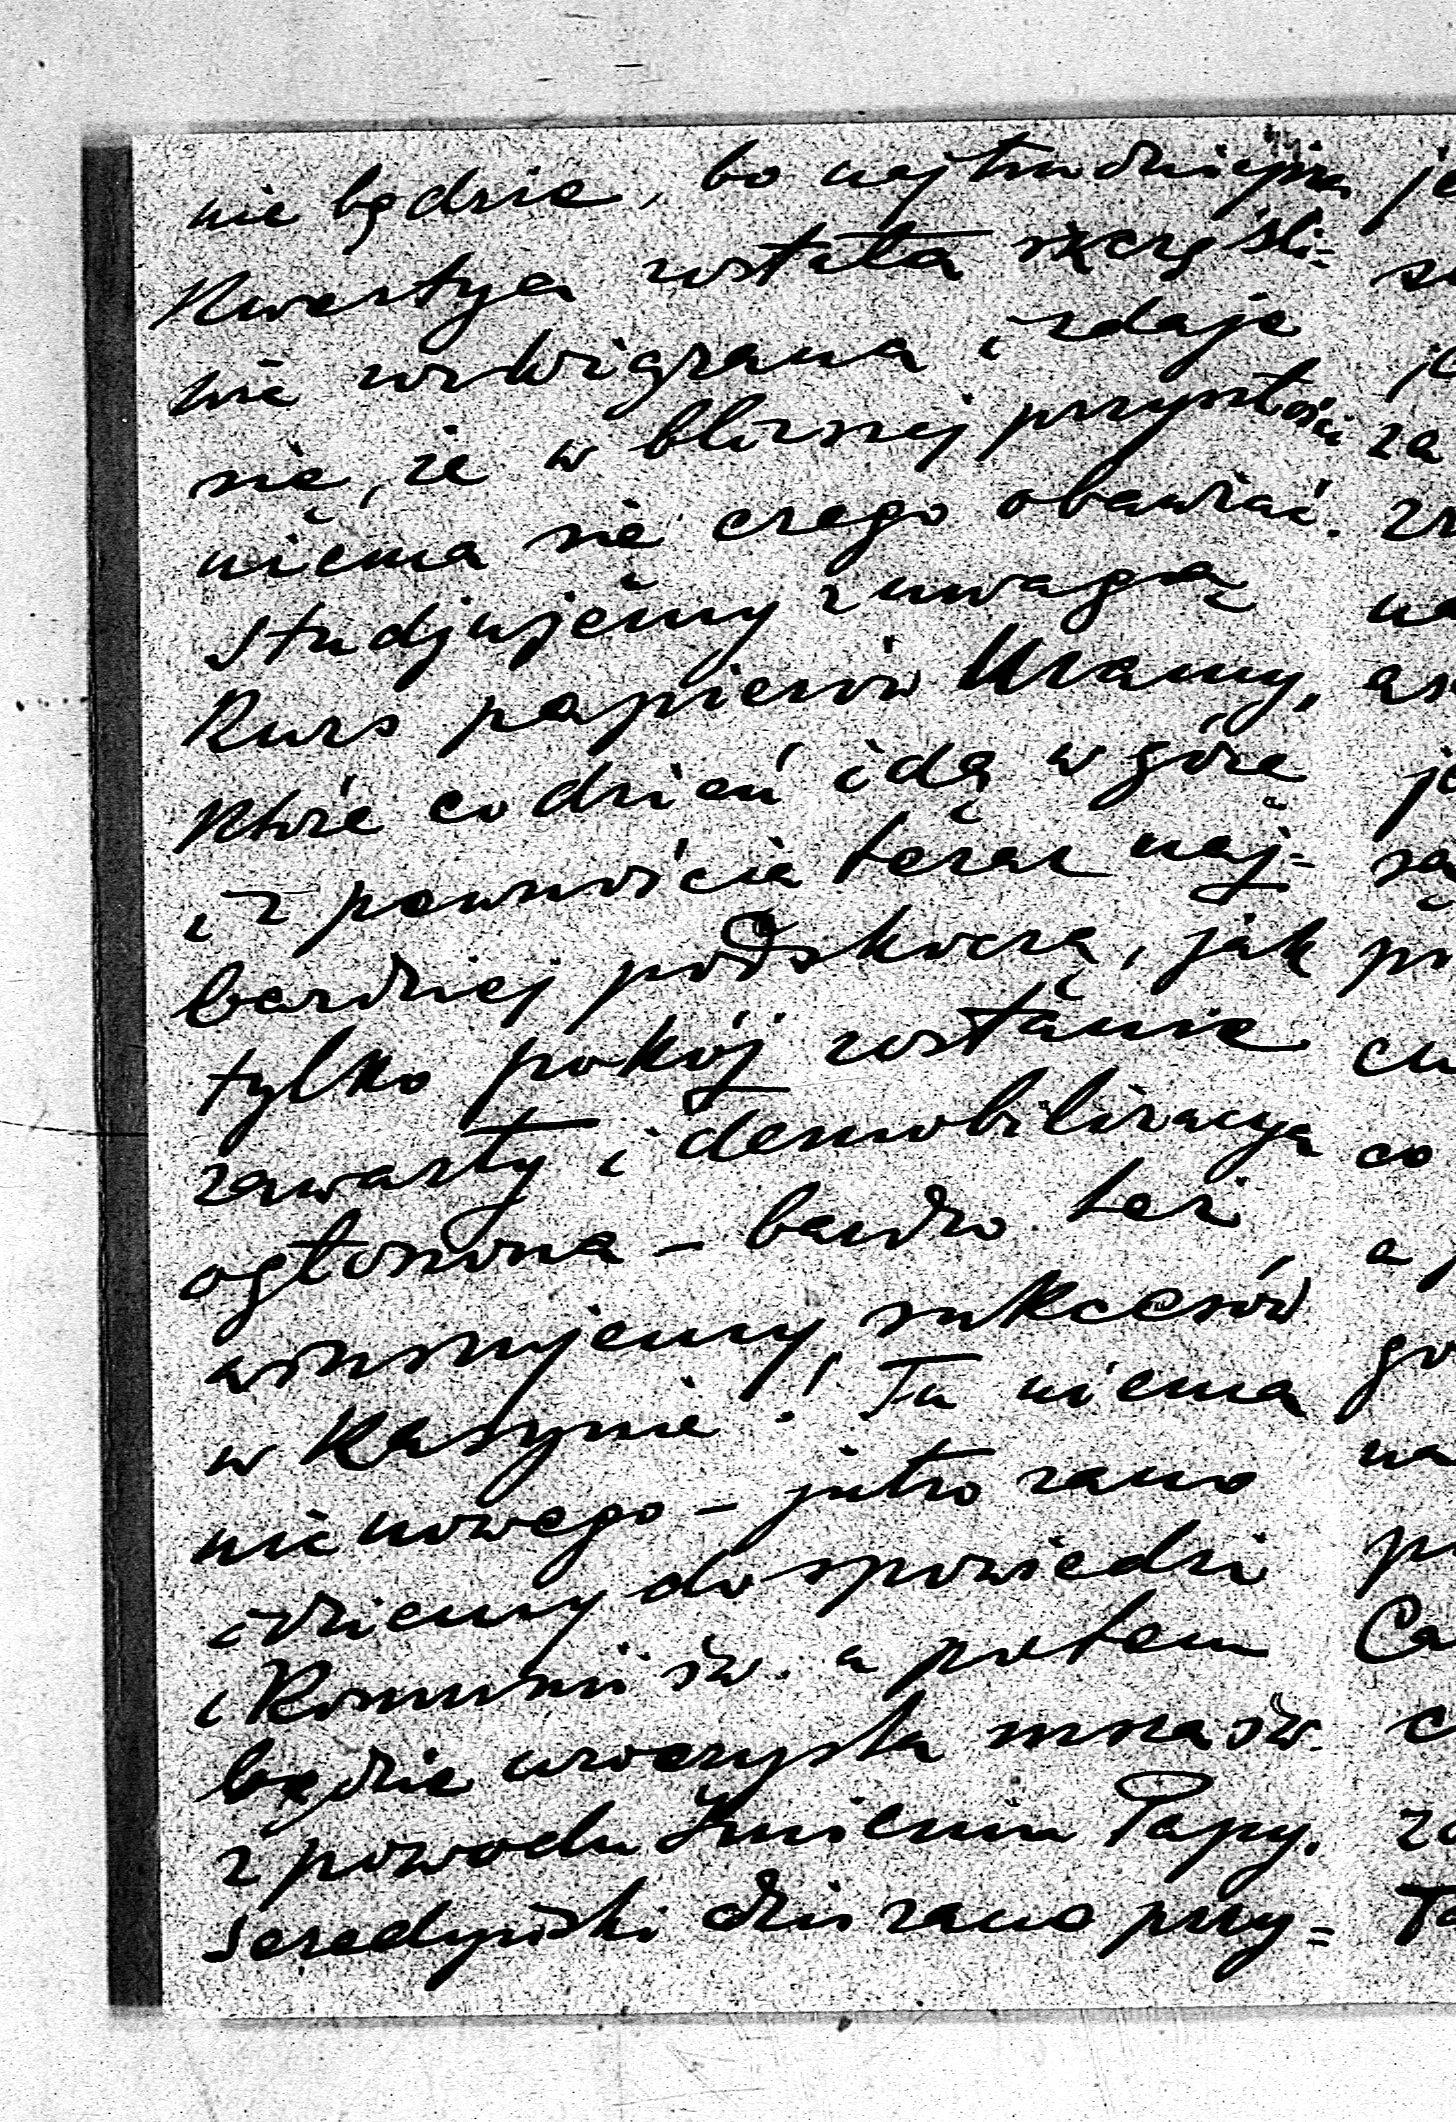 nie będzie, bo najtrudniejsza
kwestya została szczęśli-
wie rozwiązana i zdaje
się, że w bliznej przyszłości
niema się czego obawiać.
Studjujemy z uwagą
kurs papierów Mamy,
które codzień idą w górę
i z pewnością teraz naj-
bardziej podskoczą, jak
tylko pokój zostanie
zawarty i demobilizacya
ogłoszona – bardzo też
winszujemy sukcesów
w Kasynie! Tu niema
nic nowego – jutro rano
idziemy do spowiedzi
i Komunii św. a potem
będzie uroczysta msza św.
z powodu Imienin Papy.
Seredyński dziś rano przy=